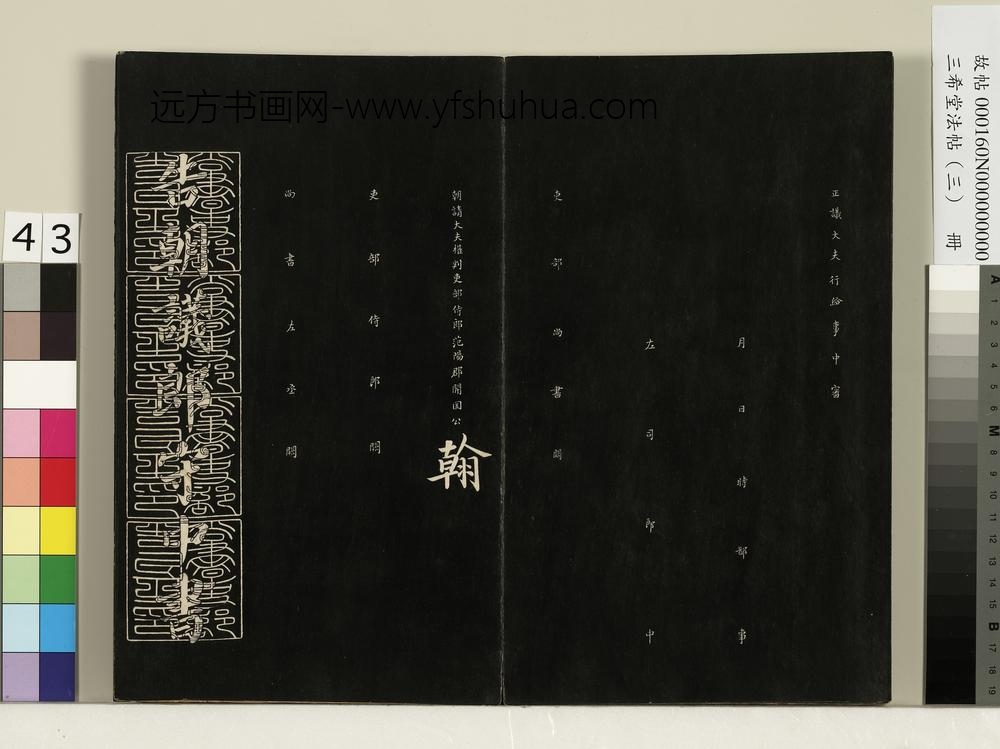 远方书画网-www.yfshuhua.com
故帖 000160N000000000
三希堂法帖（三） 冊
正議大夫行給事中審
月日時都事
左司郎中
吏部尚書闕
朝請大夫權判吏部侍郎范陽郡開國公
翰
吏部侍郎闕
尚書左丞闕
告朝議郎守中書
43
A 1 2 3 4 5 6 M 8 9 10 11 12 13 14 15 B 17 18 19